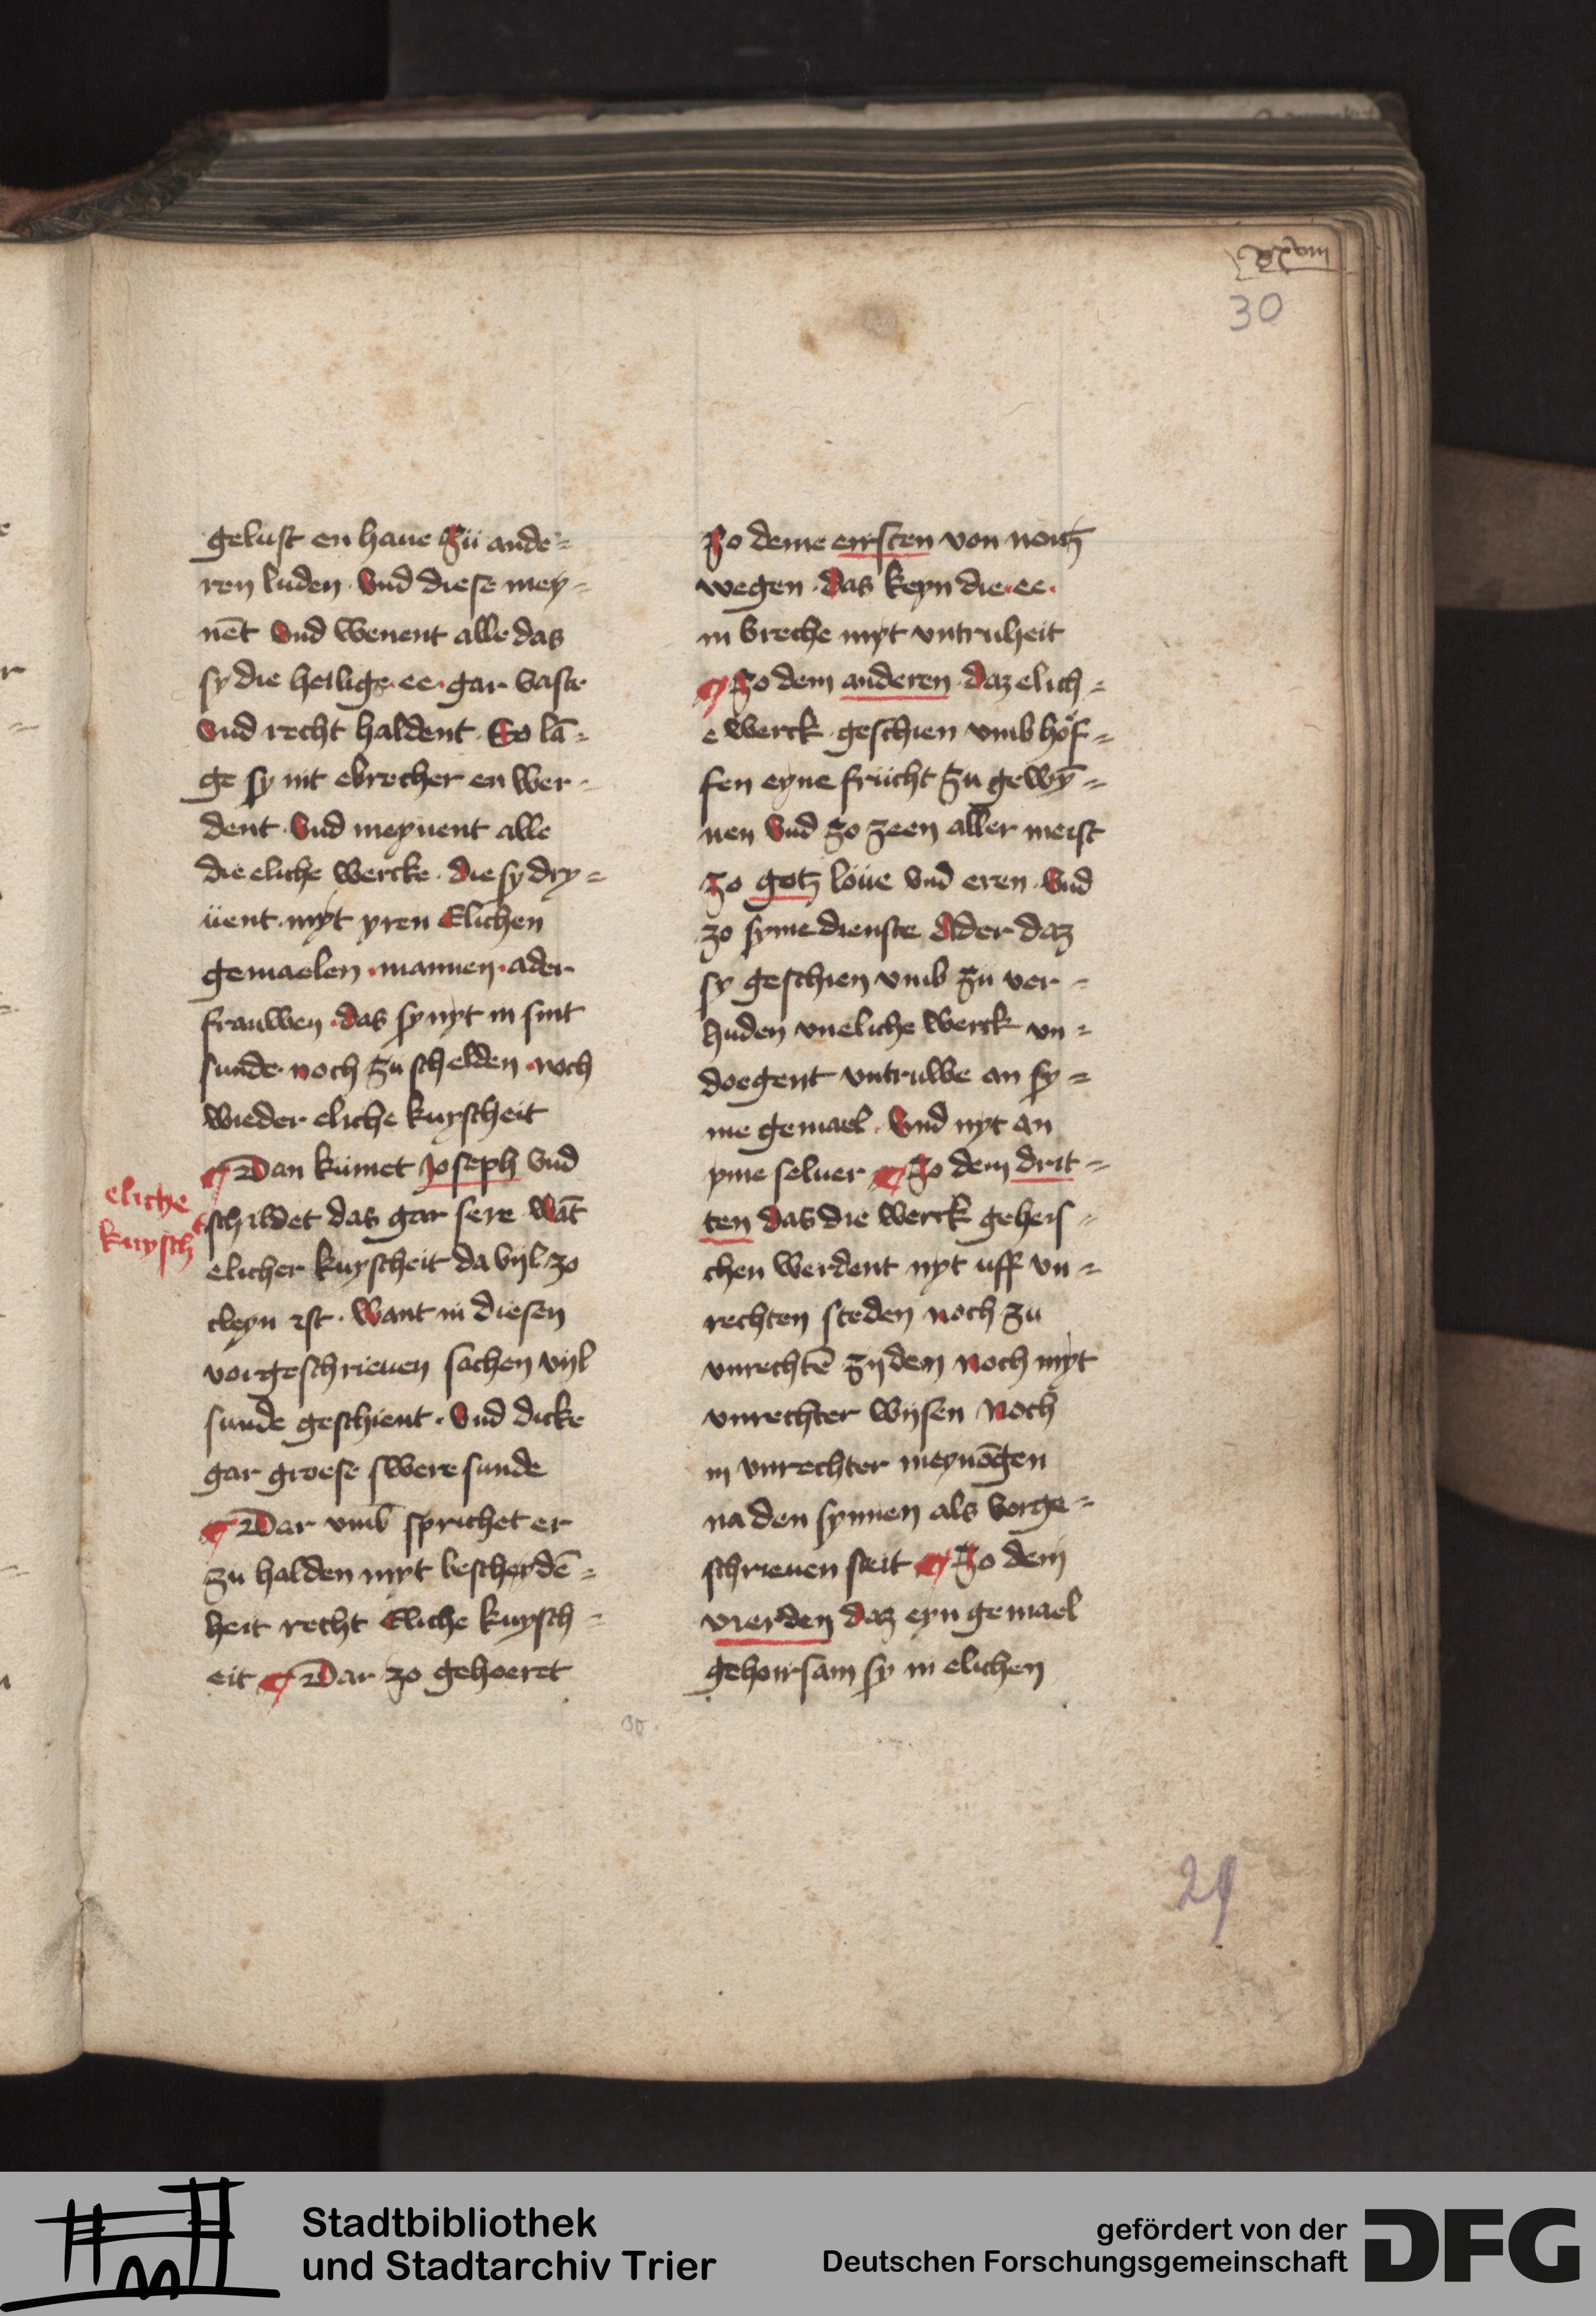 xxviii
30
gelust en haue zü ande=
ren luden · vnd diese mey=
nēt vnd wenent alle das
sy die heilige · ee · gar vaste
vnd recht haldent · So lā=
ge sy nit ebrecher en wer=
dent · vnd meynent alle
die eliche wercke · die sy dry=
üent · myt yren Elichen
gemaelen · mannen · ader
frauwen · das sy nyt in sint
sunde · noch zu schelden · noch
wieder eliche kuyscheit
¶ Dan kümet Joseph vnd
eliche
kuysch
schildet das gar sere wāt
elicher kuyscheit da vijl zo
cleyn ist · want in diesen
vorgeschrieuen sachen vijl
sunde geschient · vnd dicke
gar groese swere sunde
¶ Dar vmb sprichet er
zu halden myt bescheydē=
heit recht Eliche kuysch=
eit ¶ Dar zo gehoeret
zo deme eirsten von noitz
wegen · das keyn die · ee ·
in breche myt vntruheit
¶ Zo dem anderen daz elich=
e werck geschien vmb höf=
fen eyne frücht zu gewȳ=
nen vnd zo zeen aller meist
zo gotz löüe vnd eren · vnd
zo syme dienste Ader daz
sy geschien vmb zu ver=
huden vneliche werck vn=
doegent vntruwe an sy=
me gemael · vnd nyt an
yme seluer ¶ Zo dem drit=
ten das die werck geheis=
chen werdent nyt uff vn=
rechten steden noch zu
vnrechtē zijden noch myt
vnrechter wijsen Noch
in vnrechter meynōgen
na den synnen als vorge=
schrieuen steit ¶ Zo dem
vierden daz eyn gemael
gehoirsam sy in elichen
30.
29
Stadtbibliothek
und Stadtarchiv Trier
gefördert von der
Deutschen Forschungsgemeinschaft
DFG